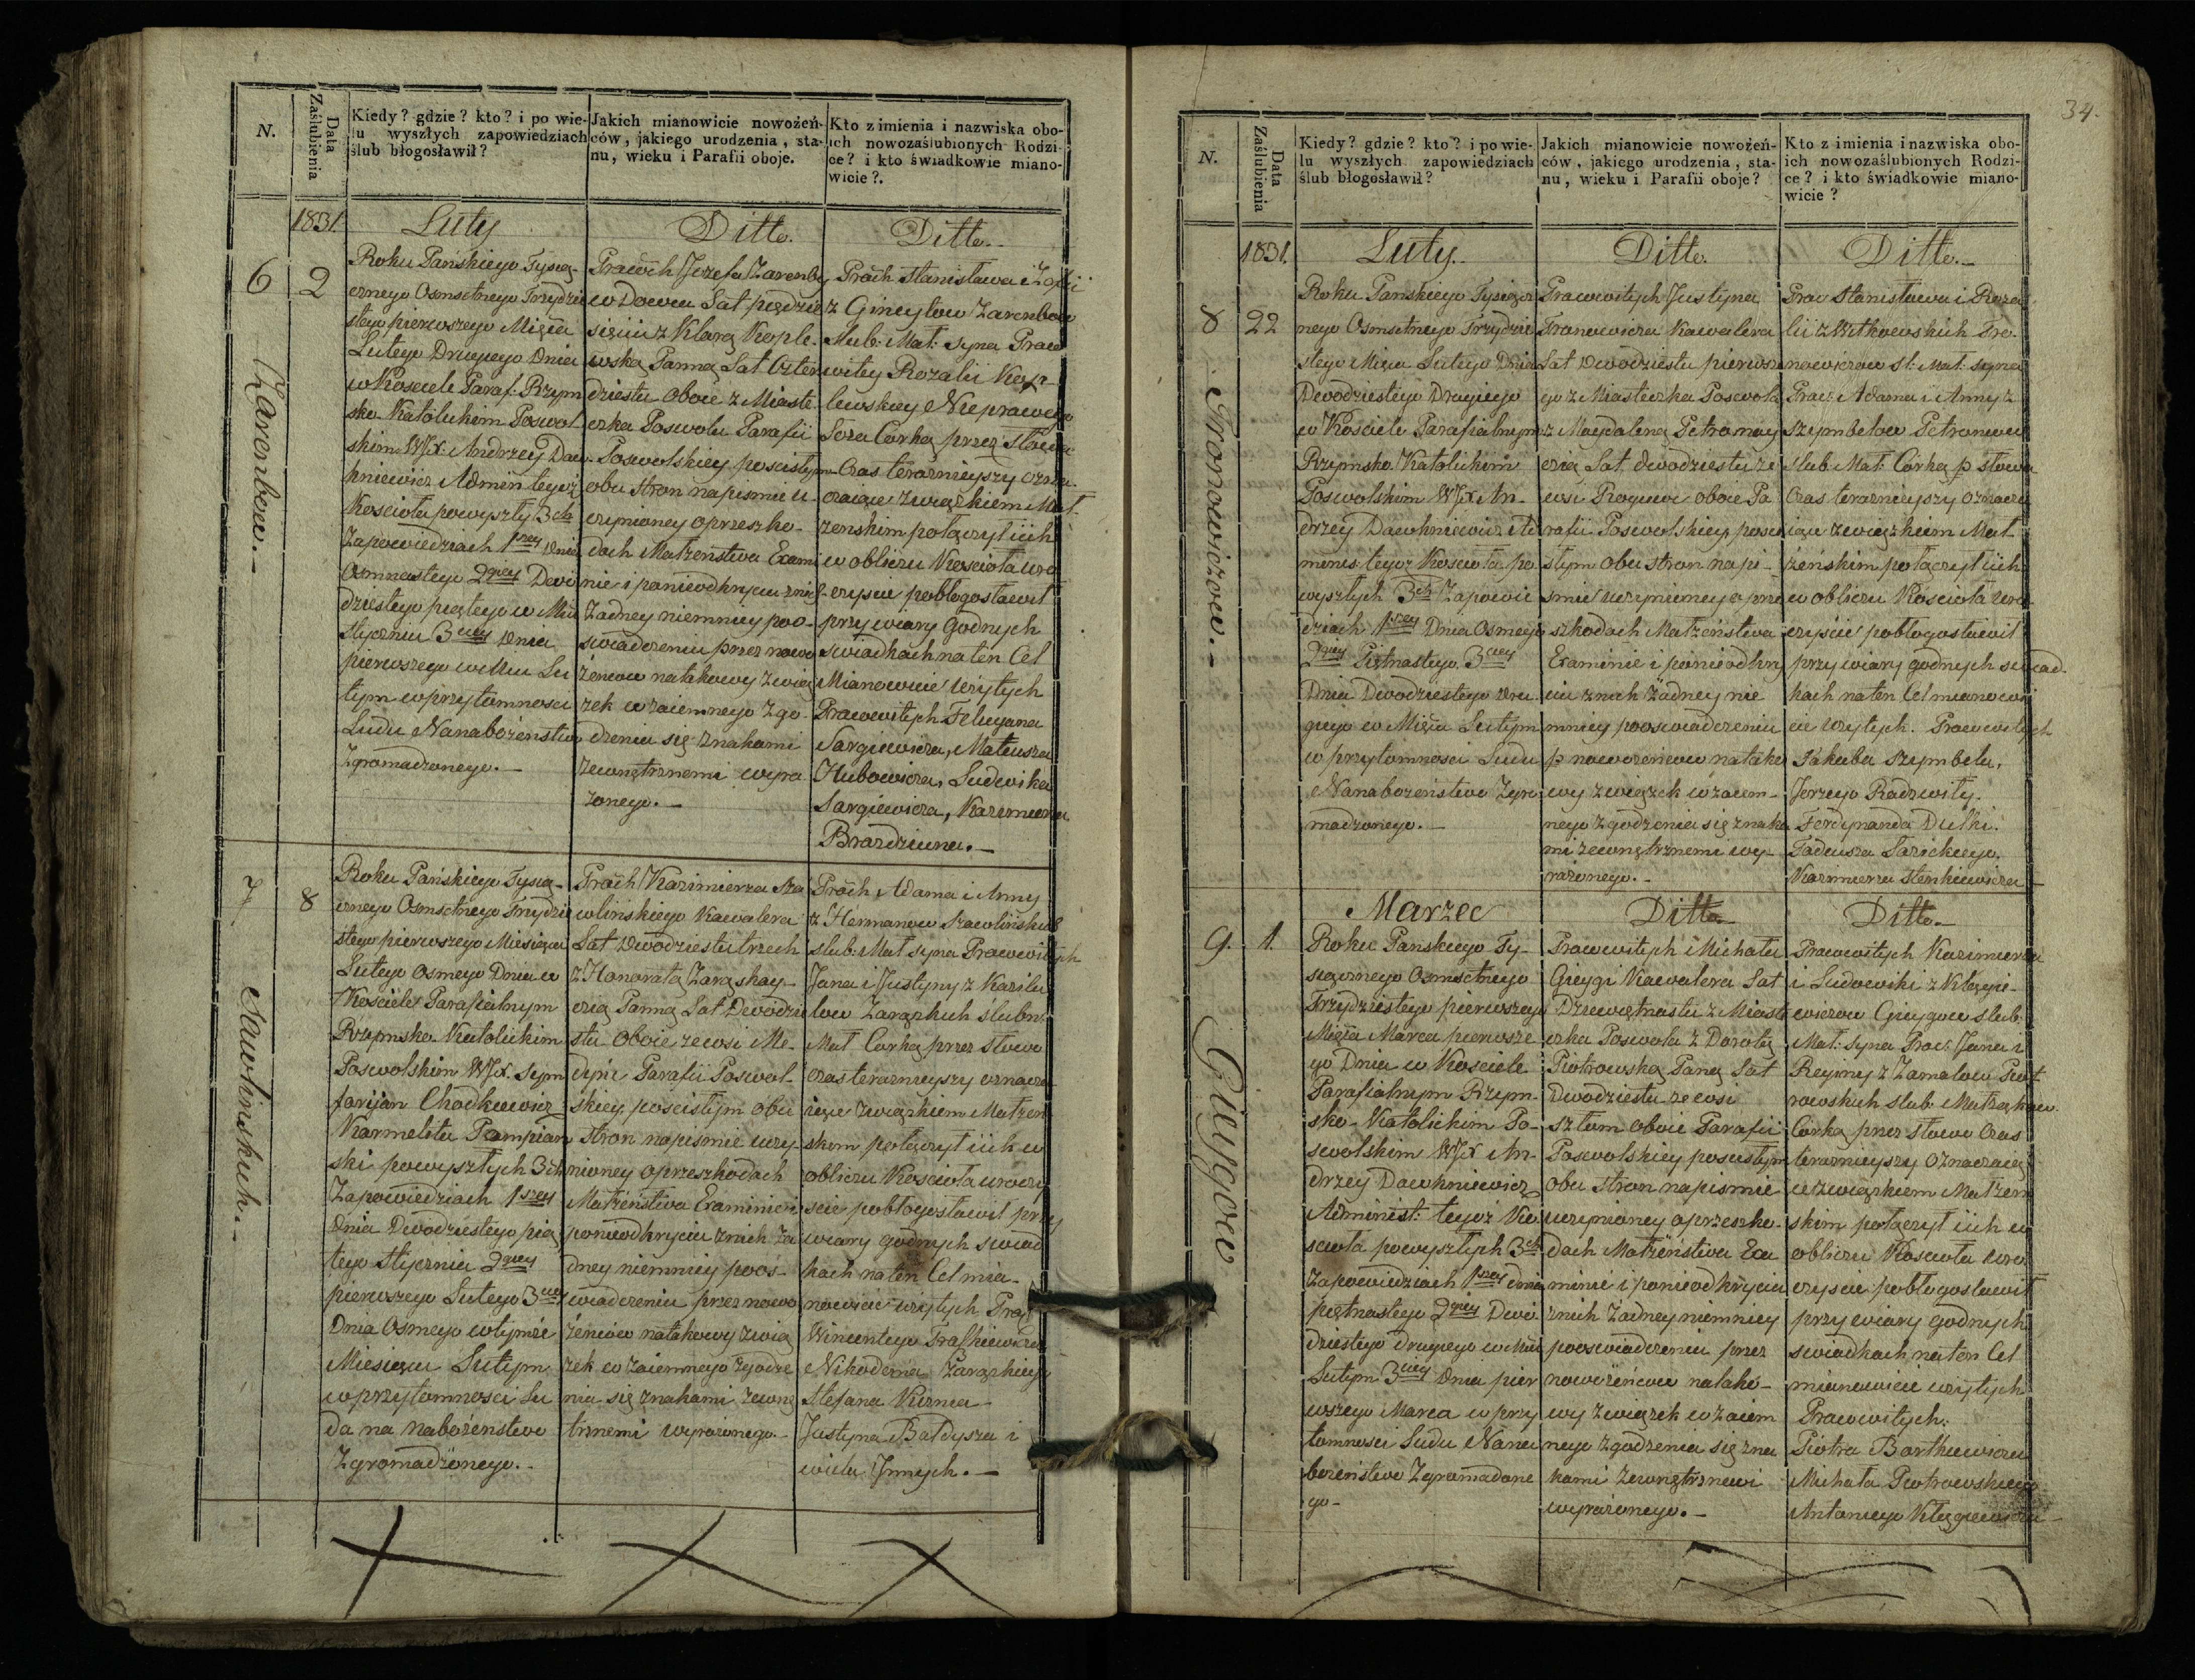 N.
Data Zaślubienia
Kiedy? gdzie? kto? i po wie-
lu wyszłych zapowiedziach
ślub błogosławił?
Jakich mianowicie nowożeń-
ców, jakiego urodzenia, sta-
nu, wieku i Parafii oboje.
Kto z imienia i nazwiska obo-
ich nowozaślubionych Rodzi-
ce? i kto świadkowie miano-
wicie?.
1831
Luty
Ditto.
Ditto.
6
2
Zarenbow.
Roku Pańskiego Tysią-
cznego Osmsetnego Trzydzie
stego pierwszego Mięca
Lutego Drugiego Dnia
w Kosciele Paraf: Rzym
sko Katolickim Poswol
skim WJX: Andrzey Daw-
kniewicz Administ tegoż
Kosciola powyszłych 3ch
Zapowiedziach 1szey Dnia
Osmnastego 2giey Dwó
dziestego piątego w Mcu
Styczniu 3ciey Dnia
pierwszego w Mcu Lu
tym w przytomnosci
Ludu Nanabożeństwo
Zgromadzonego.
Prawch Jozefa Zarenbę
wdowca Lat pięćdzie
sięciu z Klarą Kople-
wską Panną Lat Czter
dziestu oboie z Miaste
czka Poswolu Parafii
Poswolskiey poscisłym
obu stron napismie u-
czynioney oprzeszko-
dach Małżeństwa Exami
nie i poniewodkryciu znich
Żadney niemniey poo-
swiadczeniu przez nowo
żeńcow natakowy związ
zek wzaiemnego Zgo-
dzenia się znakami
zewnętrznemi wyra
żonego.
Prawch Stanisława i Zofii
z Gineytow Zarenbow
slub: Mał: syna Praw
witey Rozalii Kop-
lewskiey Nieprawego
Łoza Corką przez słowa
Czas teraznieyszy ozna-
czaiące związkiem Mał
żenskim połączył iich
w obliczu Kosciola uro
czyscie pobłogosławił
przy wiary Godnych
swiadkach na ten Cel
Mianowicie użytych
Prawowitych Felicyana
Sargiewicza, Mateusza
Hubowicza, Ludwika
Sargiewicza, Kazimierza
Brazdziuna.
7
8
Szawlinskich.
Roku Pańskiego Tysią-
cznego Osmsetnego Trzydzie
stego pierwszego Miesiąca
Lutego Osmego Dnia w
Kosciele Parafialnym
Rzymsko Katolickim
Poswolskim WJX. Sym
foryan Chodkiewicz
Karmelita Pompian
ski powyszłych 3ch
Zapowiedziach 1szey
Dnia Dwodziestego pią
tego Stycznia 2giey
pierwszego Lutego 3ciey
Dnia Osmego wtymże
Miesiącu Lutym
w przytomnosci Lu
du na nabożeństwo
Zgromadzonego.
Prawch Kazimierza Sza
wlińskiego Kawalera
Lat Dwodziestu trzech
z Honoratą Zarąskay-
czią Panną Lat Dwódzie
stu oboie ze wsi Me-
dyni Parafii Poswol-
skiey, poscisłym obu
stron napismie uczy
nioney oprzeszkodach
Małżeństwa Examinie i
poniewodkryciu znich Ża
dney niemniey poos-
wiadczeniu przez nowo
żeńcow natakowy związ
zek wzaiemnego zgodze
nia się znakami zewnę
trznemi wyrażonego.
Prawch Adama i Anny
z Hermanow Szawlińskich
slub: Mał syna Prawowitych
Jana i Justyny z Kazilu
low Zarąskich slubn:
Mał Corką przez słowo
czas teraznieyszy oznacza
iące związkiem Małżen
skim połączył iich w
obliczu Kosciola uroczy
scie pobłogosławił przy
wiary godnych swiad
kach na ten Cel mia-
nowicie użytych Praw
Wincentego Fraskiewicza
Nikodema Zarąskiego
Stefana Kiznia
Justyna Bałdysza i
wielu Innych.
34.
N.
Data Zaślubienia
Kiedy? gdzie? kto? i po wie-
lu wyszłych zapowiedziach
ślub błogosławił?
Jakich mianowicie nowożeń-
ców, jakiego urodzenia, sta-
nu, wieku i Parafii oboje?
Kto z imienia i nazwiska obo-
ich nowozaślubionych Rodzi-
ce? i kto świadkowie miano-
wicie?
1831.
Luty.
Ditto.
Ditto.
8
22
Fronowiczow.
Roku Pańskiego Tysiącz
nego Osmsetnego Trzydzie
stego Mięca Lutego Dnia
Dwodziestego Drugiego
w Kosciele Parafialnym
Rzymsko Katolickim
Poswolskim WJX An-
drzey Dawkniewicz Ad
minis: tegoz Kosciola po
wyszłych 3ch Zapowie
dziach 1szey Dnia Osmego
2giey Piętnastego 3ciey
Dnia Dwodziestego dru
giego w Mięcu Lutym
w przytomnosci Ludu
Nanabożeństwo Zgro
madzonego.
Prawowitych Justyna
Fronowicza Kawalera
Lat Dwodziestu pierwsze
go z Miasteczka Poswola
z Magdaleną Petronay
czią Lat dwodziestu ze
wsi Rogowe oboie Pa
rafii Poswolskiey, posci
słym obu stron napi-
smie uczynioney o prze
szkodach Małżeństwa
Examinie i poniewodkry
ciu znich Żadney nie
mniey pooswiadczeniu
p nowożeńcow natako
wy związek wzaiem-
nego zgodzenia się znaka
mi zewnętrznemi wy-
rażonego.
Praw Stanisława i Roza
lii z Witkowskich Fro-
nowiczow sl: Mał: syna
Praw: Adama i Anny z
Szymbelow Petronow
slub Mał: Corką p słowa
Czas teraznieyszy oznacza
iące związkiem Mał
żeńskim połączył iich
w obliczu Kosciola Uro
czyście pobłogosławił
przy wiary godnych swiad-
kach na ten Cel mianowi
cie użytych. Prawowitych
Jakuba Szymbela,
Jerzego Radziwiły.
Ferdynanda Dulki.
Tadeusza Sarickiego.
Kazimierza Stenkiewicza
Marzec
Ditto.
Ditto.
9.
1.
Gieygow
Roku Panskiego Ty-
siącznego Osmsetnego
Trzydziestego pierwszego
Mięca Marca pierwsze
go Dnia w Kosciele
Parafialnym Rzym-
sko-Katolickim Po-
swolskim WJX An-
drzey Dawkniewicz
Administ: tegoz Ko
sciola powyszłych 3ch
Zapowiedziach 1szey dnia
piętnastego 2giey Dwó
dziestego drugiego w Mcu
Lutym 3ciey Dnia pier
wszego Marca w przy
tomnosci Ludu Nana
bożeństwo Zgromadzone
go-
Prawowitych Michała
Gieygi Kawalera Lat
Dziewiętnastu z Miaste
czka Poswola z Dorotą
Piotrowską Paną Lat
Dwodziestu ze wsi
Sztum oboie Parafii
Poswolskiey poscisłym
obu stron napismie
uczynioney oprzeszko-
dach Małżeństwa Exa
minie i poniewodkryciu
znich Żadney niemniey
pooswiadczeniu przez
nowożeńcow natako-
wy związek wzaiem
nego zgodzenia się zna
kami zewnętrznemi
wyrażonego.
Prawowitych Kazimierza
i Ludowiki z Klęgie-
wiczow Gieygow slub:
Mał: syna Praw: Jana i
Reginy z Zamalow Piot
rowskich slub. Małżąkow.
Corką przez słowo Czas
teraznieyszy oznaczaią
ce związkiem Małżen
skim połączył iich w
obliczu Kosciola uro
czyscie pobłogosławił
przy wiary godnych
swiadkach na ten Cel
mianowicie użytych
Prawowitych:
Piotra Bartkiewicza
Michała Piotrowskiego
Antoniego Klęgiewicza